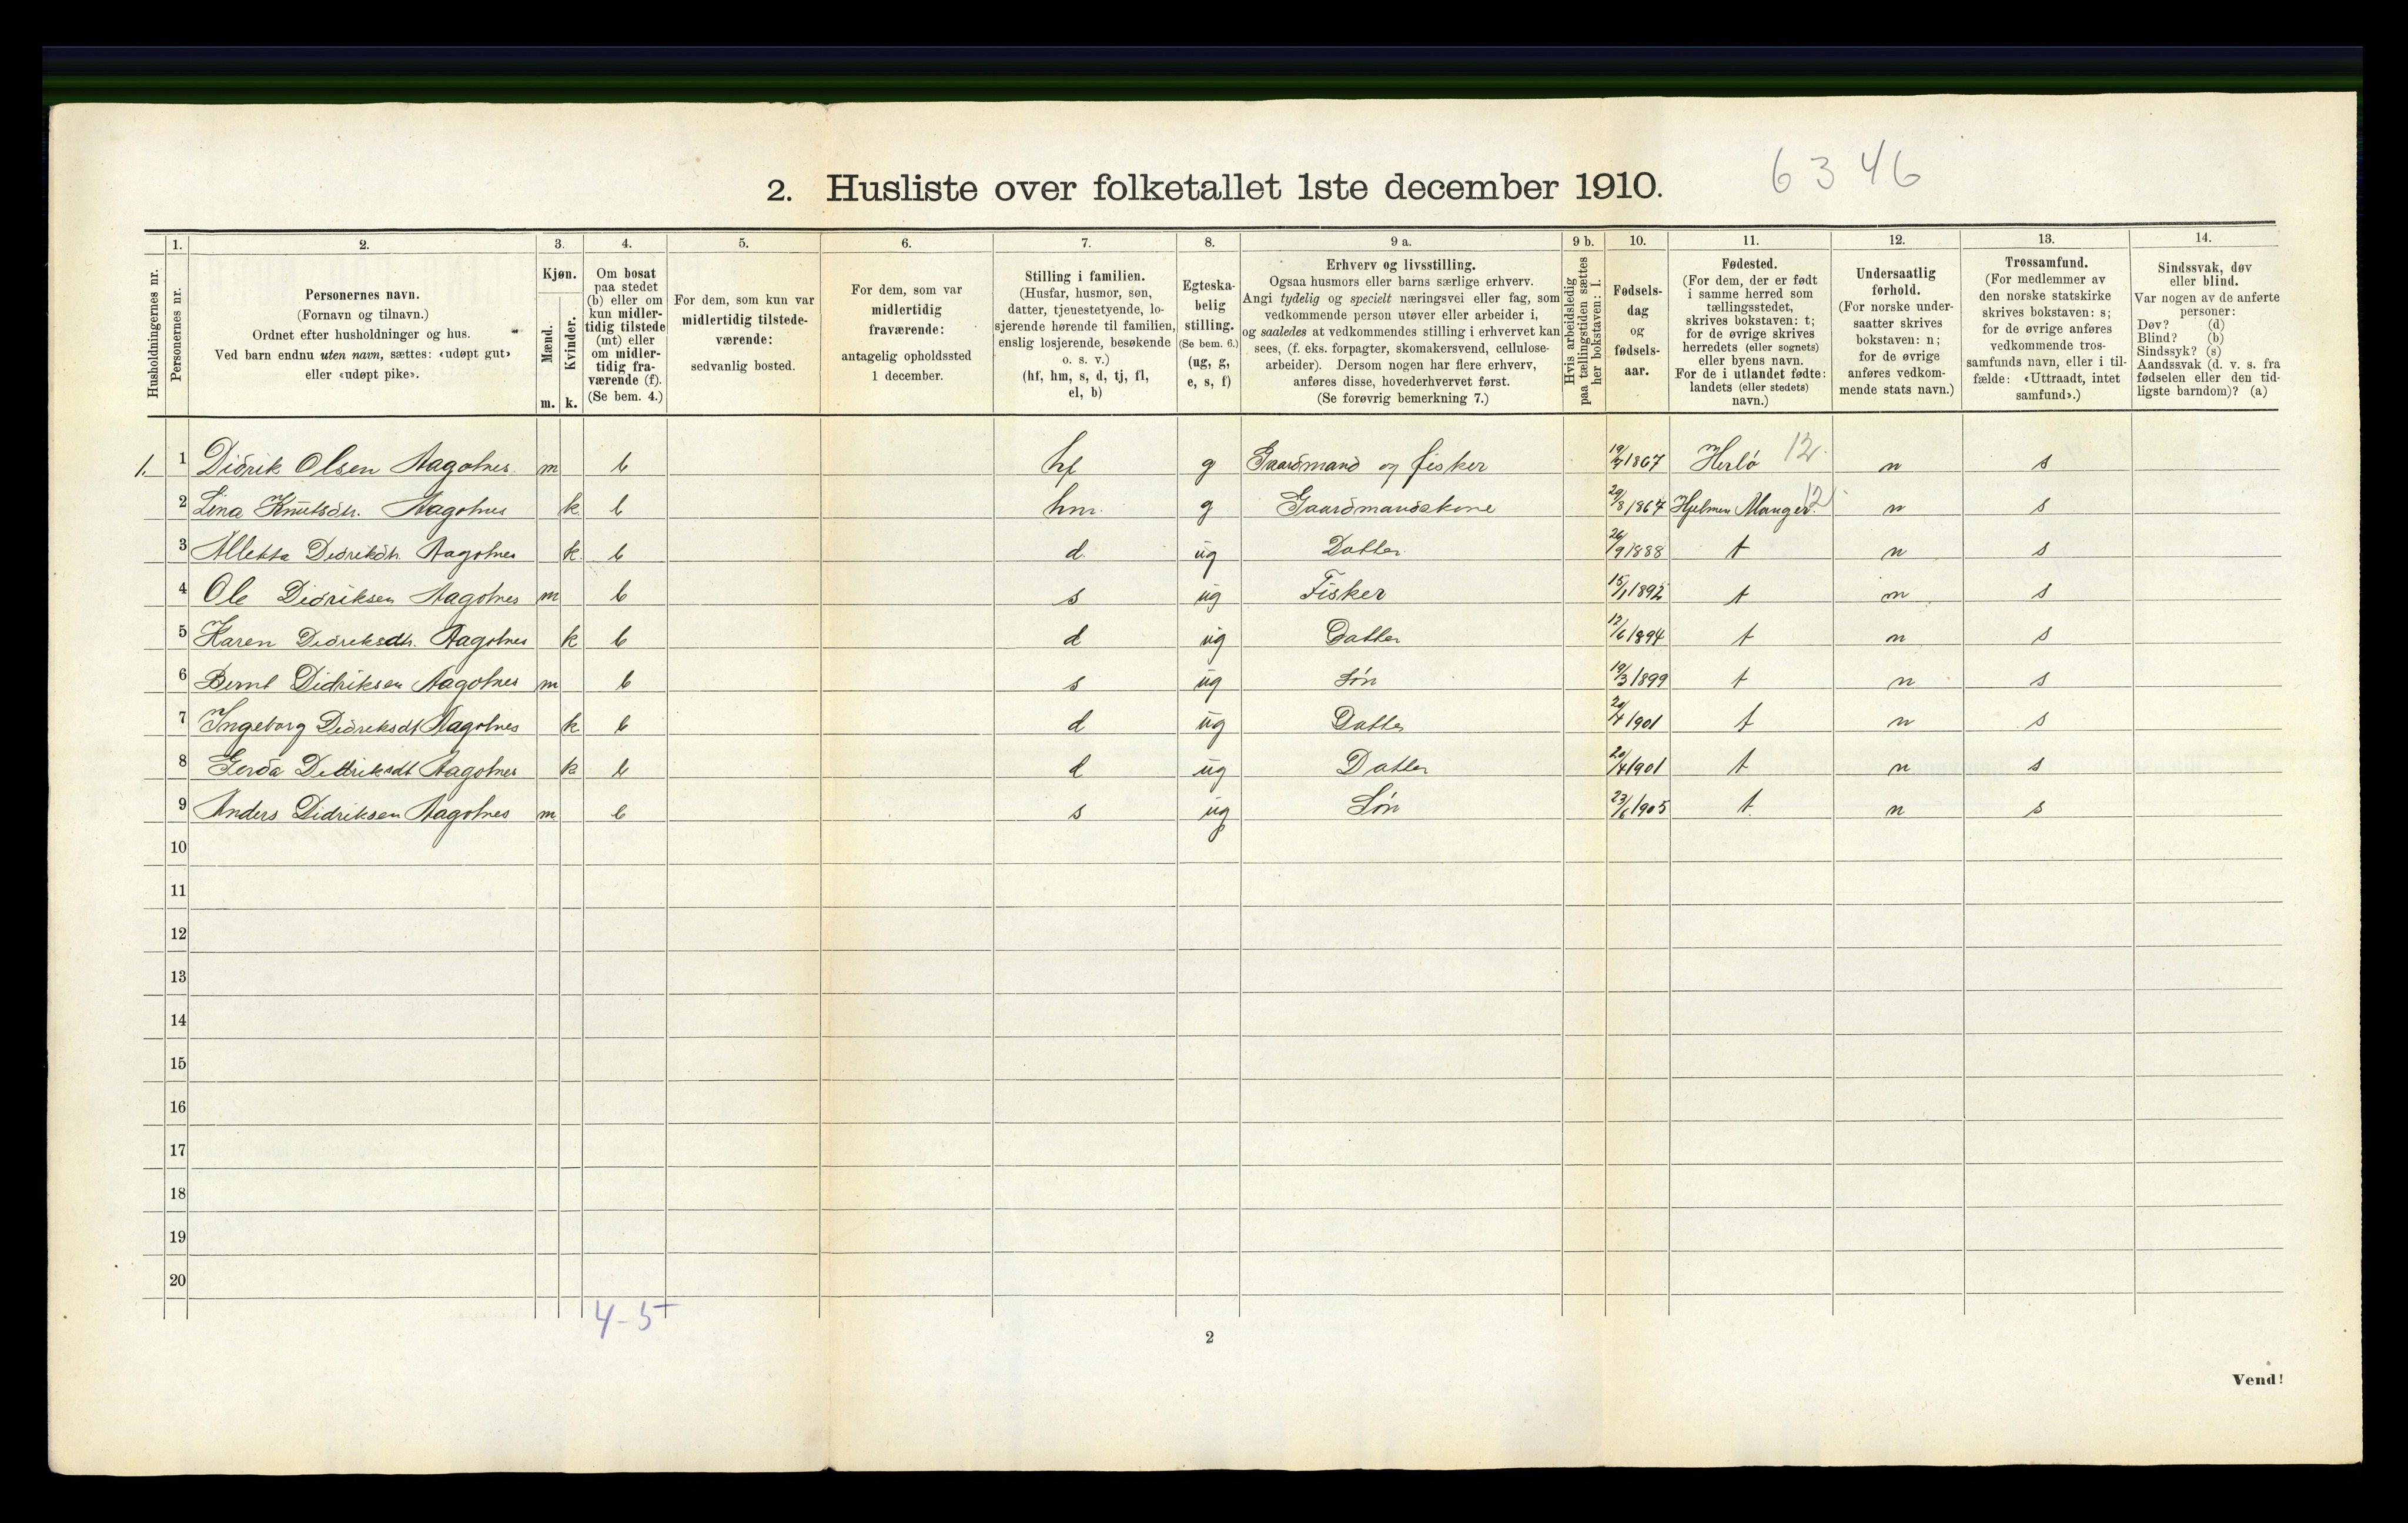 6346
2. Husliste over folketallet 1ste december 1910.
Husholdningernes nr.
1. Personernes nr.
2. Personernes navn.
(Fornavn og tilnavn.)
Ordnet efter husholdninger og hus.
Ved barn endnu uten navn, sættes: «udøpt gut»
eller «udøpt pike».
3. Kjøn.
Mænd. Kvinder.
m. k.
4. Om bosat
paa stedet
(b) eller om
kun midler-
tidig tilstede
(mt) eller
om midler-
tidig fra-
værende (f).
(Se bem. 4.)
5. For dem, som kun var
midlertidig tilstede-
værende:
sedvanlig bosted.
6. For dem, som var
midlertidig
fraværende:
antagelig opholdssted
1 december.
7. Stilling i familien.
(Husfar, husmor, søn,
datter, tjenestetyende, lo-
sjerende hørende til familien,
enslig losjerende, besøkende
o. s. v.)
(hf, hm, s, d, tj, fl,
el, b)
8. Egteska-
belig
stilling.
(Se bem. 6.)
(ug, g,
e, s, f)
9 a. Erhverv og livsstilling.
Ogsaa husmors eller barns særlige erhverv.
Angi tydelig og specielt næringsvei eller fag, som
vedkommende person utøver eller arbeider i,
og saaledes at vedkommendes stilling i erhvervet kan
sees, (f. eks. forpagter, skomakersvend, cellulose-
arbeider). Dersom nogen har flere erhverv,
anføres disse, hovederhvervet først.
(Se forøvrig bemerkning 7.)
9 b. Hvis arbeidsledig
paa tællingstiden sættes
her bokstaven: l.
10. Fødsels-
dag
og
fødsels-
aar.
11. Fødested.
(For dem, der er født
i samme herred som
tællingsstedet,
skrives bokstaven: t;
for de øvrige skrives
herredets (eller sognets)
eller byens navn.
For de i utlandet fødte:
landets (eller stedets)
navn.)
12. Undersaatlig
forhold.
(For norske under-
saatter skrives
bokstaven: n;
for de øvrige
anføres vedkom-
mende stats navn.)
13. Trossamfund.
(For medlemmer av
den norske statskirke
skrives bokstaven: s;
for de øvrige anføres
vedkommende tros-
samfunds navn, eller i til-
fælde: «Uttraadt, intet
samfund».)
14. Sindssvak, døv
eller blind.
Var nogen av de anførte
personer:
Døv? (d)
Blind? (b)
Sindssyk? (s)
Aandssvak (d. v. s. fra
fødselen eller den tid-
ligste barndom)? (a)
1. 1 Didrik Olsen Aagotnes m b hf g Gaardmand og fisker 1867 Herlö 12 n s
2 Lina Knutsdtr. Aagotnes k b hm g Gaardmandskone 29/8 1867 Hjelmen Manger 12 n s
3 Alletta Didrikdtr. Aagotnes k b d ug Datter 26/9 1888 t n s
4 Ole Didriksen Aagotnes m b s ug Fisker 15/1 1892 t n s
5 Karen Didriksdtr. Aagotnes k b d ug Datter 12/6 1894 t n s
6 Bernt Didriksen Aagotnes m b s ug Søn 19/3 1899 t n s
7 Ingeborg Didriksdt Aagotnes k b d ug Datter 20/4 1901 t n s
8 Gerda Didriksdt Aagotnes k b d ug Datter 20/4 1901 t n s
9 Anders Didriksen Aagotnes m b s ug Søn 23/6 1905 t n s
10
11
12
13
14
15
16
17
18
19
20
4-5
2
Vend!